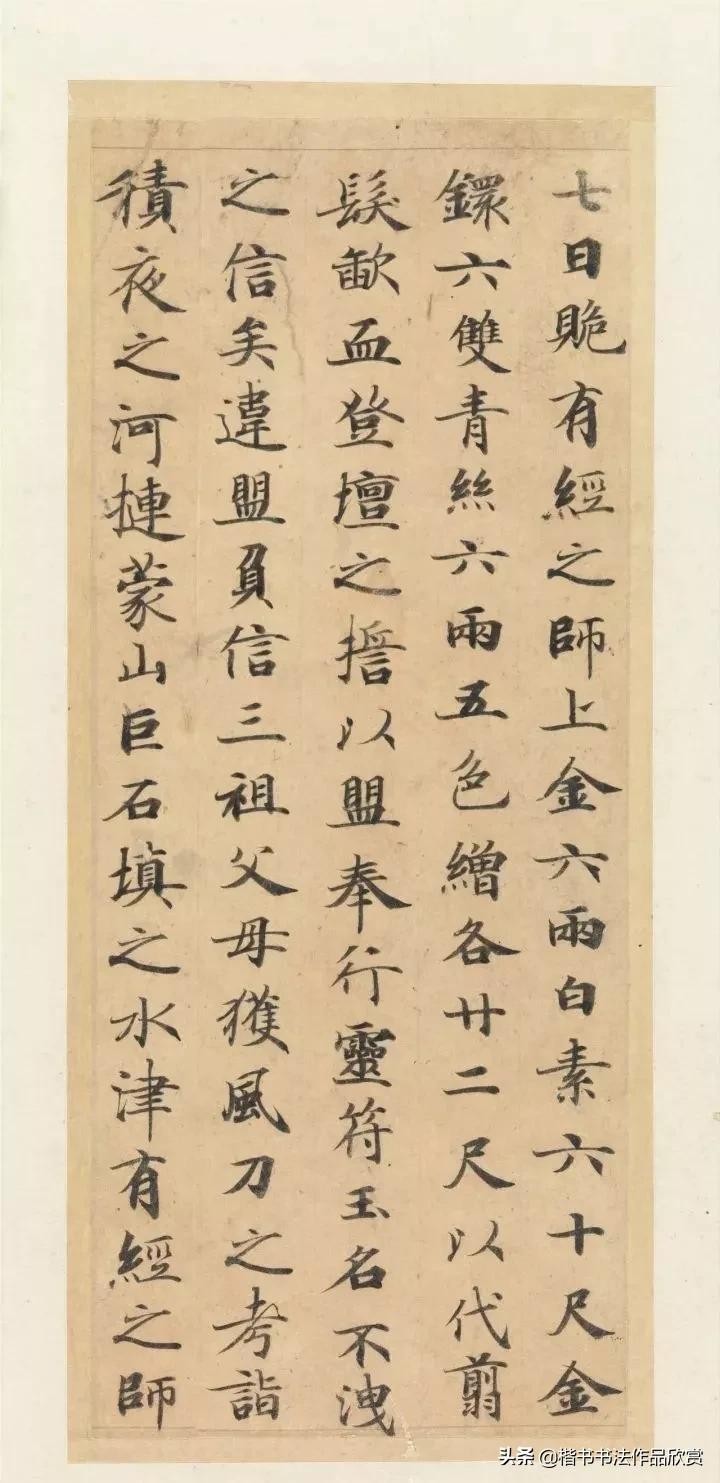 七日賝有經之師上金六兩白素六十尺金
鐶六雙青絲六兩五色繒各廿二尺以代翦
髮歃血登壇之誓以盟奉行靈符玉名不洩
之信矣違盟負信三祖父母獲風刀之考詣
積夜之河摙蒙山巨石填之水津有經之師
头条 @楷书书法作品欣赏